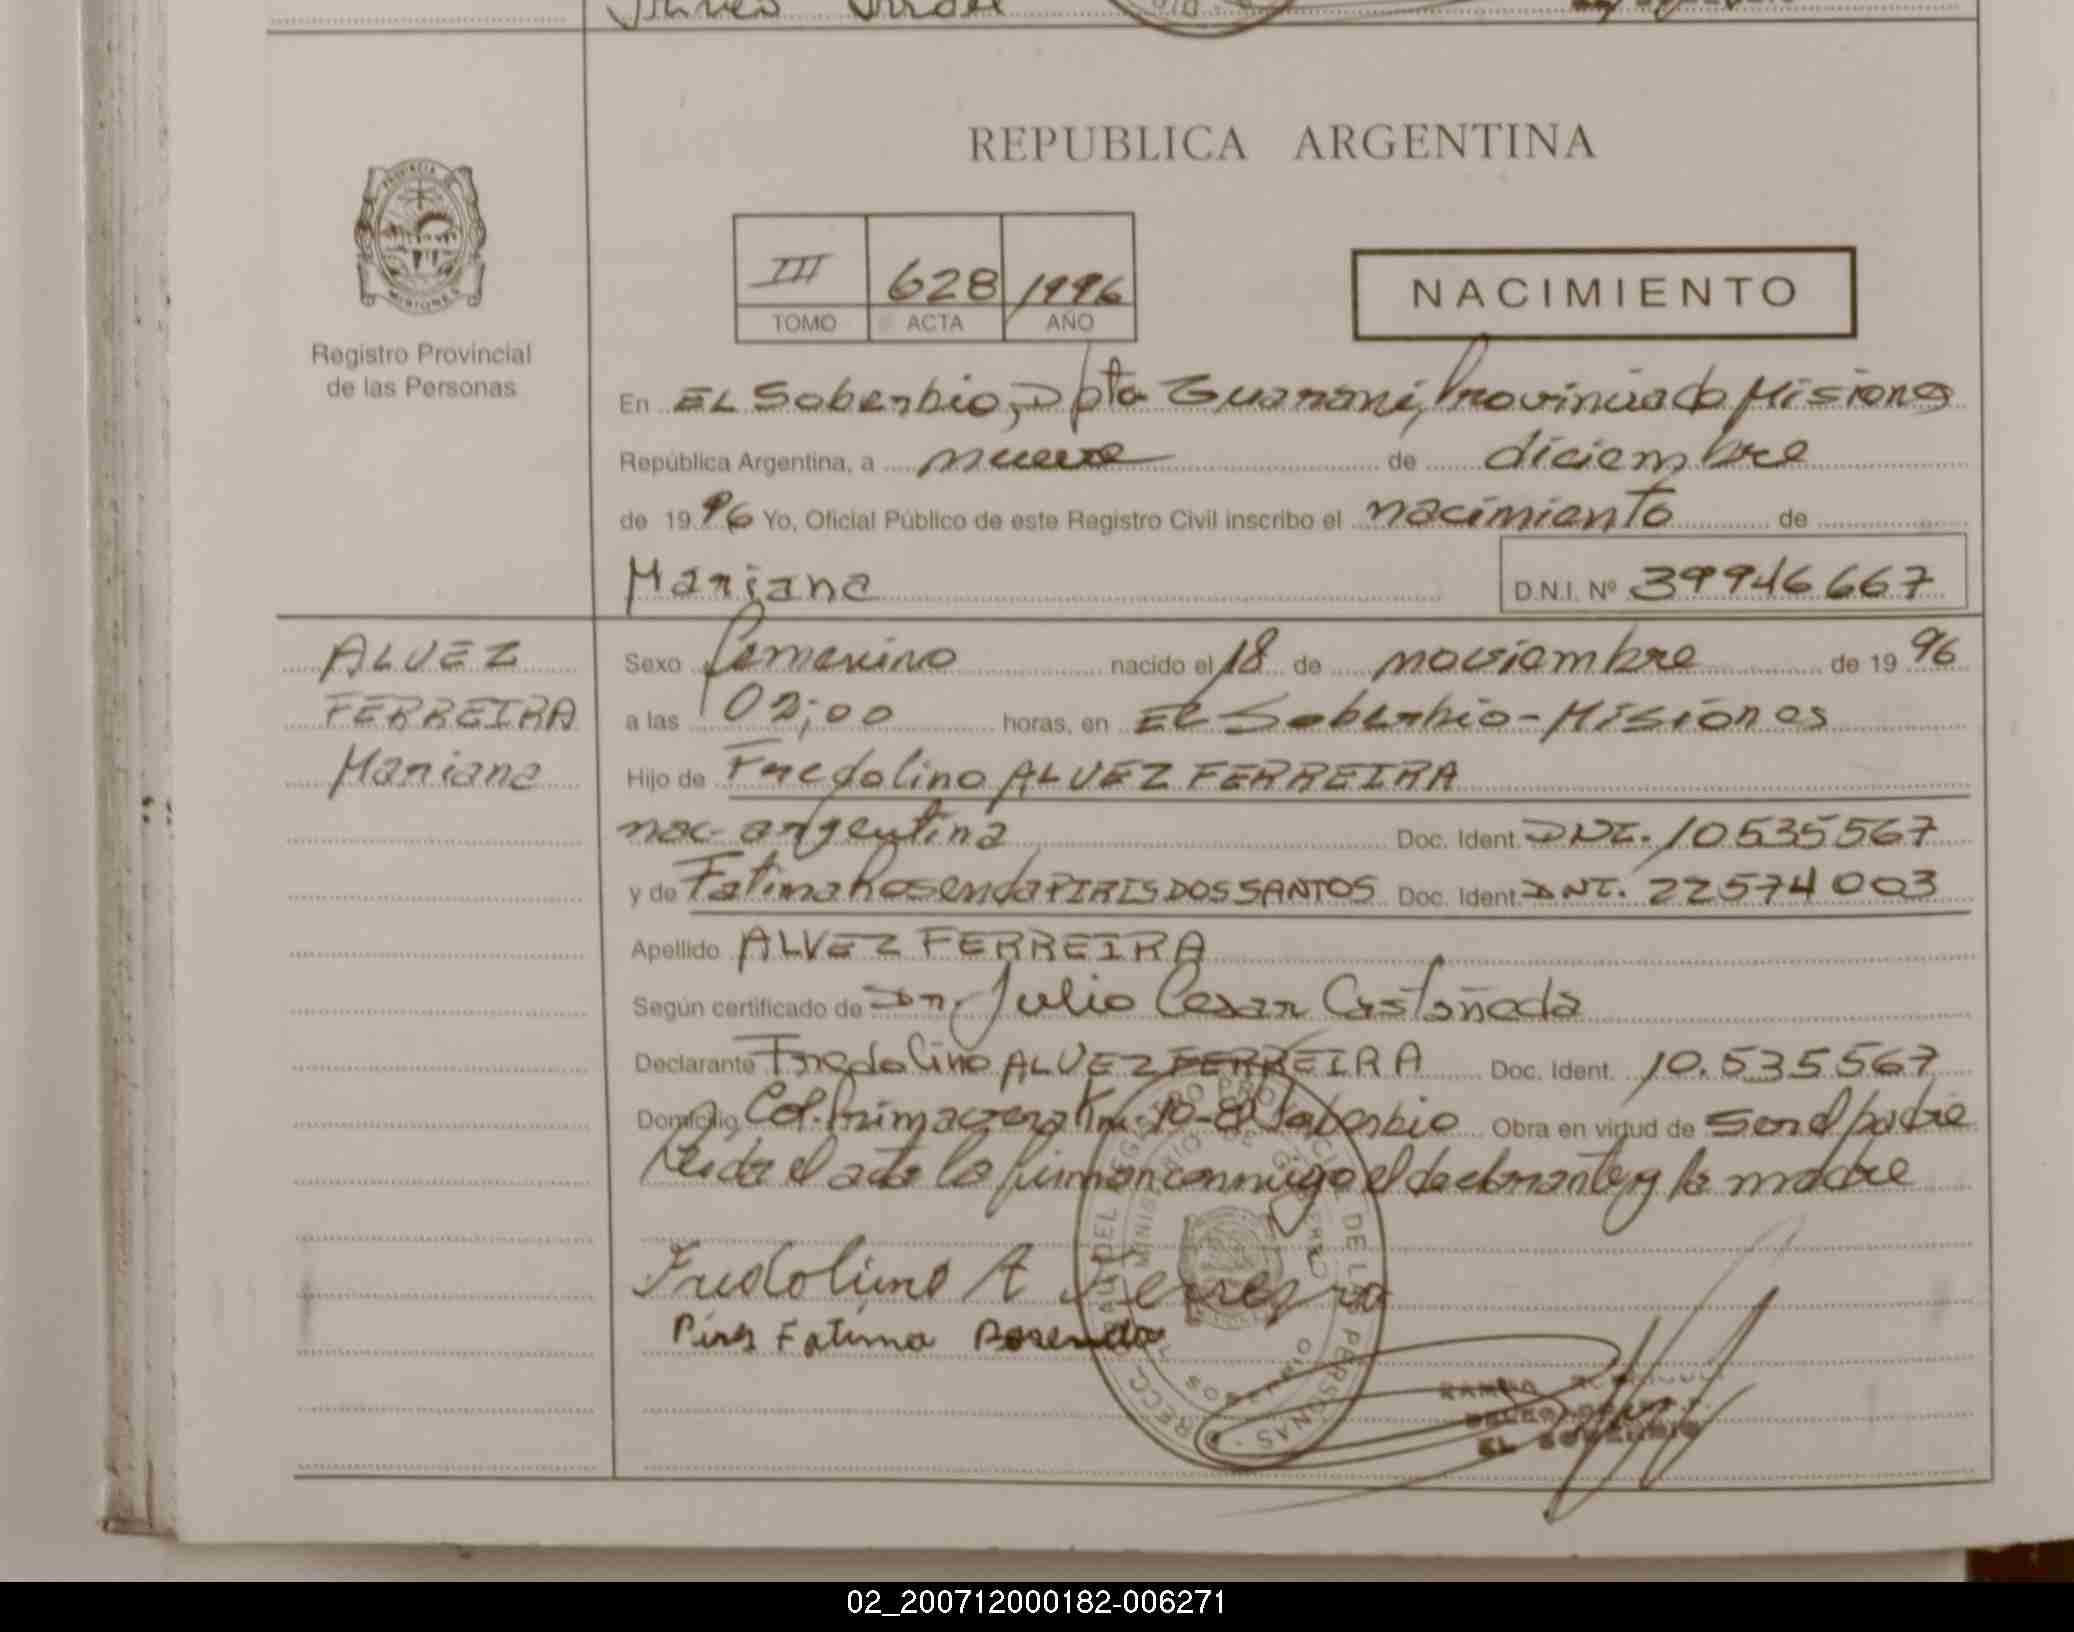 REPUBLICA ARGENTINA
PROVINCIA DE
MISIONES
Registro Provincial
de las Personas
III 628 1996
TOMO ACTA AÑO
NACIMIENTO
En EL Soberbio, Dpto Guarani, Provincia de Misiones
República Argentina, a nueve de diciembre
de 1996 Yo, Oficial Público de este Registro Civil inscribo el nacimiento de
Mariana D.N.I. Nº 39946667
ALVEZ
FERREIRA
Mariana
Sexo femenino nacido el 18 de noviembre de 1996
a las 02;00 horas, en El Soberbio-Misiones
Hijo de Fredolino ALVEZ FERREIRA
nac- argentina Doc. Ident. DNI. 10535567
y de Fatima Rosenda PIRIS DOS SANTOS Doc. Ident. DNI. 22574003
Apellido ALVEZ FERREIRA
Según certificado de Dr. Julio Cesar Castañeda
Declarante Fredolino ALVEZ FERREIRA Doc. Ident. 10.535567
Domicilio Col. Primavera Km. 10-El Soberbio Obra en virtud de ser el padre
Leida el acta la firman conmigo el declarante y la madre
Fredolino A Ferreira
Piris Fatima Rosenda
EL SOBERBIO
02_200712000182-006271